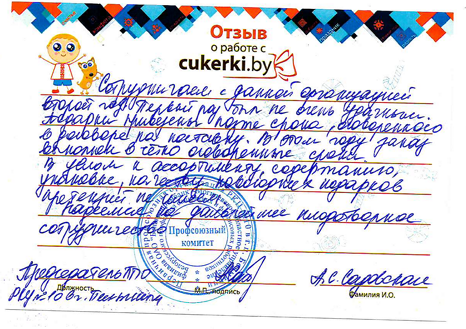 Отзыв
о работе с
cukerki.by
Сотрудничаем с данной организацией
второй год. Первый раз был не очень удачным.
Подарки привезены позже срока, оговоренного
в договоре на поставку. В этом году заказ
выполнен в чётко оговоренные сроки.
В целом к ассортименту, содержанию,
упаковке, качеству новогодних подарков
претензий не имеем.
Надеемся на дальнейшее плодотворное
сотрудничество.
Профсоюзный
комитет
Председатель ППО
Должность
М.П. подпись
Фамилия И.О.